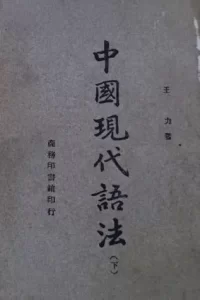 王力著
中國現代語法
(下)
商務印書館印行